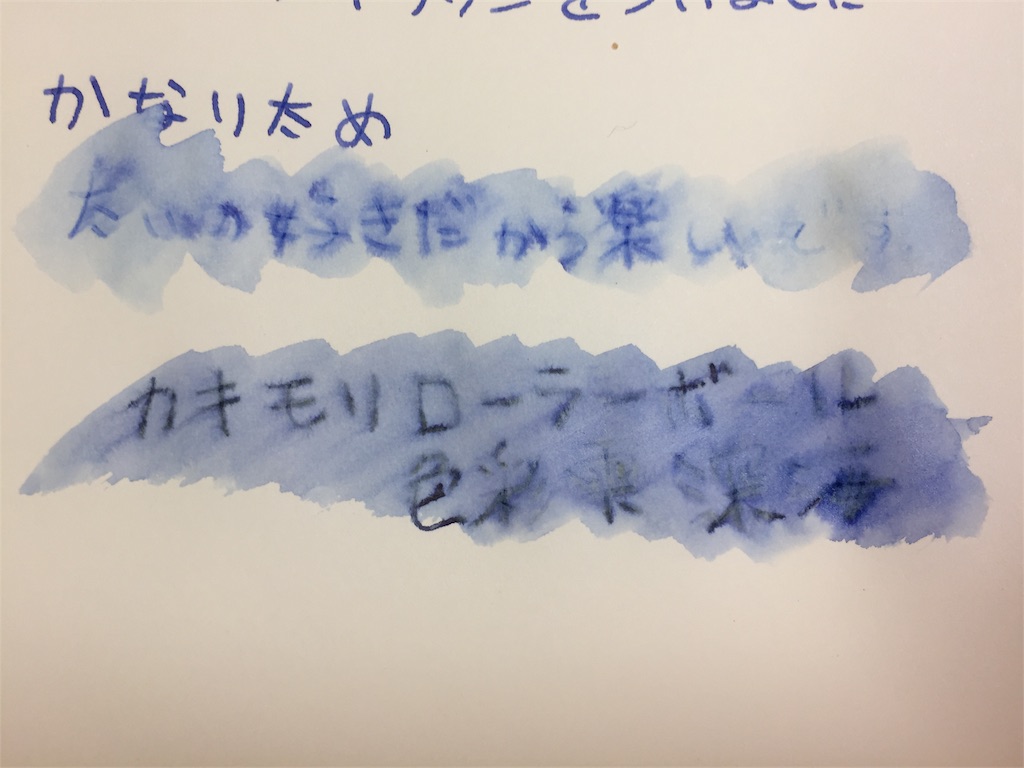 をつけました
かなり太め
太いの好きだから楽しいです
カキモリローラーボール
色彩雫 深海